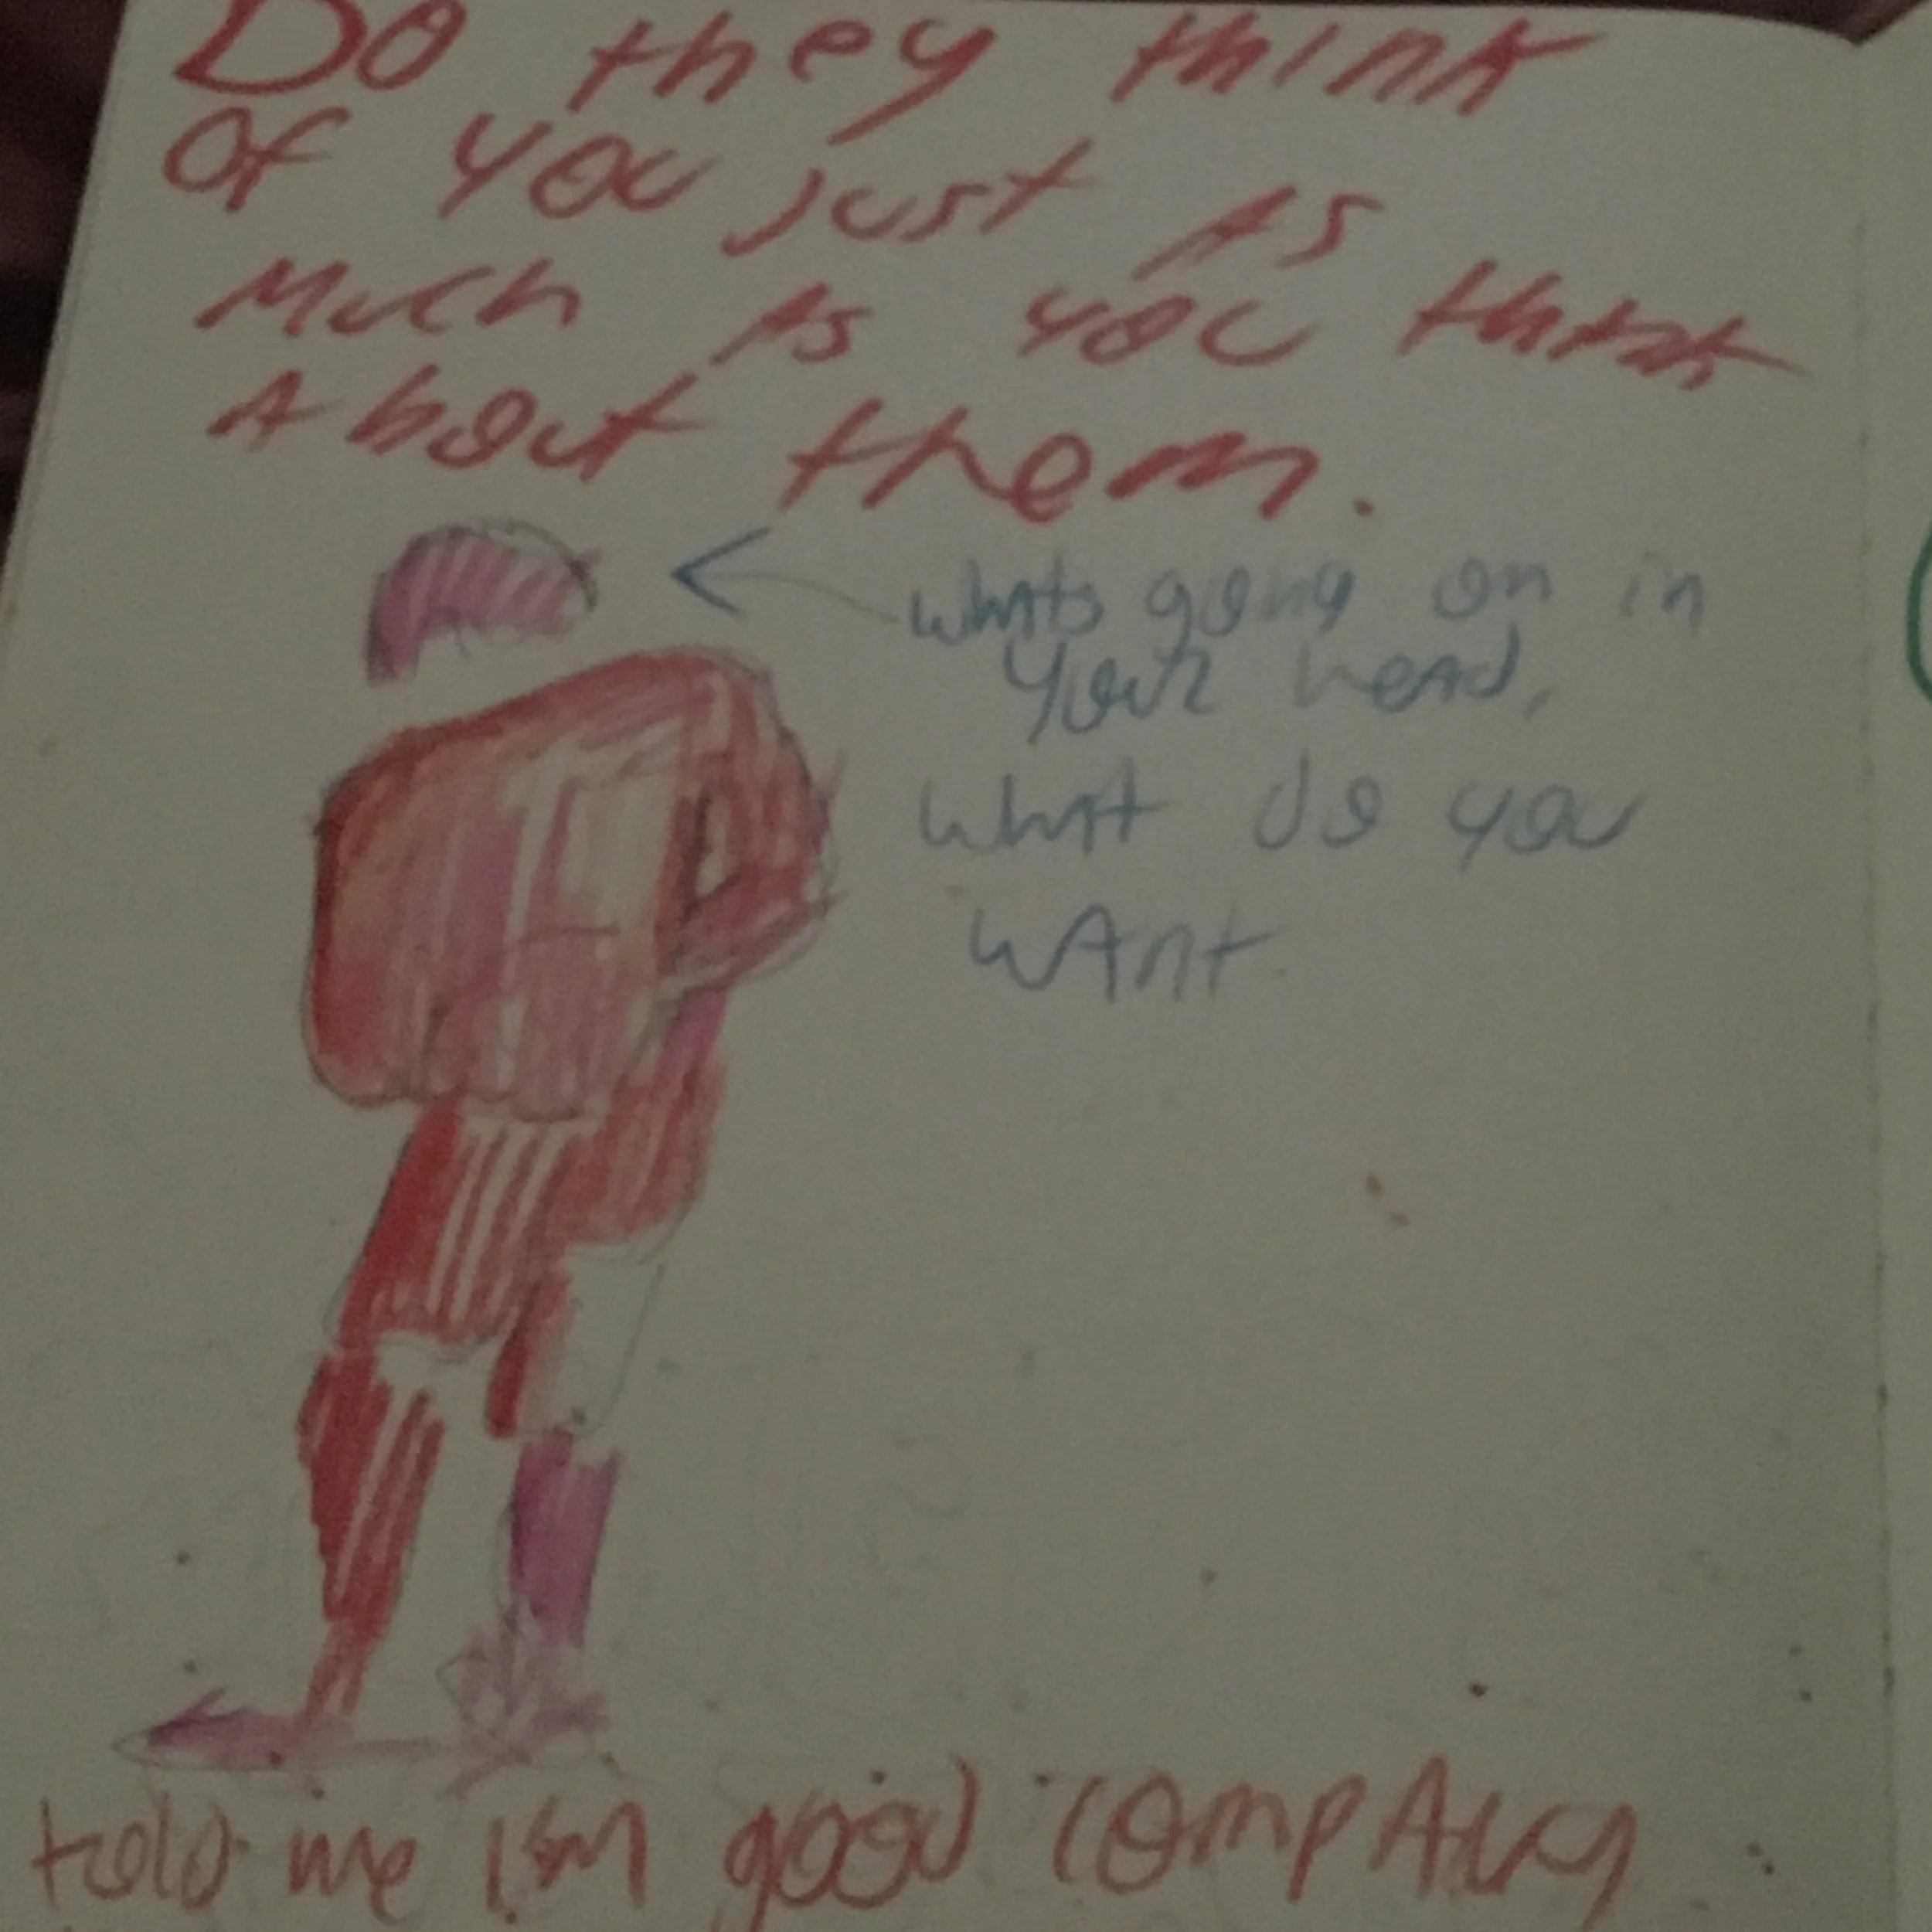 Do they think
Of you just As
Much As you think
About them.
whats going on in
your head,
what do you
wAnt
told me i'm good compAny